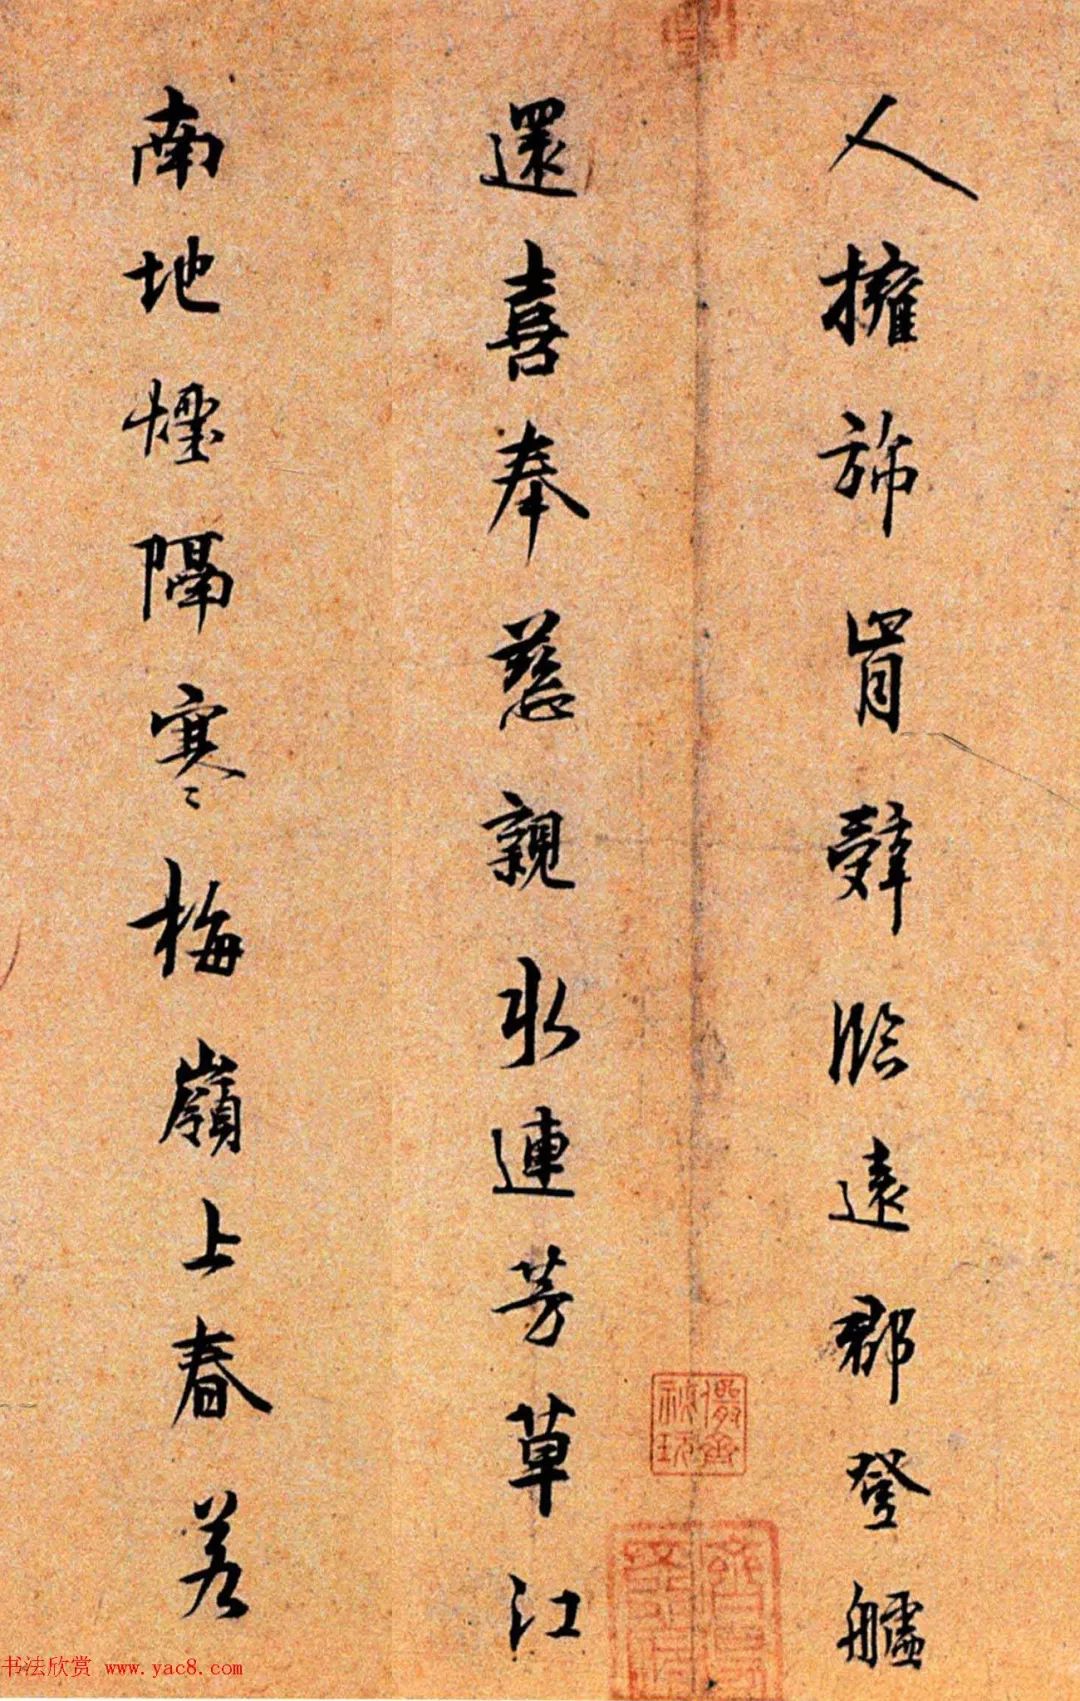 人擁旆胥聲臨遠郡登艫
還喜奉慈親水連芳草江
南地煙隔寒〻梅嶺上春若
書法欣赏 www.yac8.com